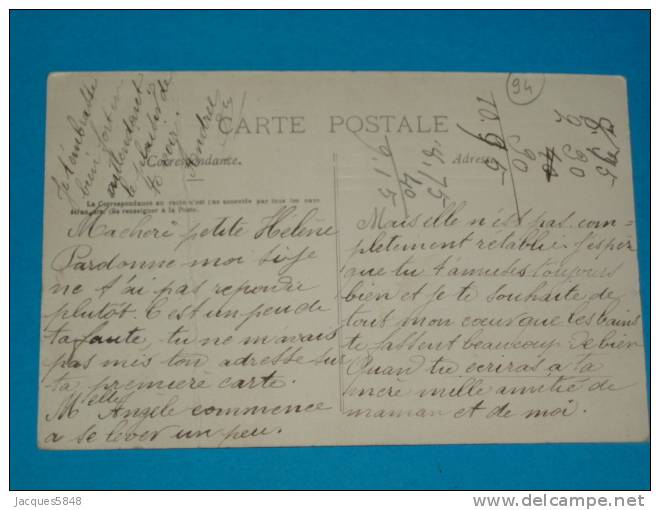 94
CARTE POSTALE
Correspondance.
Adresse
La Correspondance au verso n'est pas acceptée par tous les pays
étrangers. (Se renseigner à la Poste.)
Ma chère petite Hélène
Pardonne moi si je
ne t'ai pas repondu
plutôt. C'est un peu de
ta faute, tu ne m'avais
pas mis ton adresse sur
ta première carte.
Melle Angèle commence
a se lever un peu.
Mais elle n'est pas com-
pletement retablie. J'espère
que tu t'amuses toujours
bien et je te souhaite de
tous mon cœur que les bains
te fassent beaucoup de bien
Quand tu ecriras a ta
mère mille amitié de
maman et de moi.
Je t'embrasse
bien fort en
attendant
le plaisir de
te voir.
Andrée
Jacques5848
www.delcampe.net